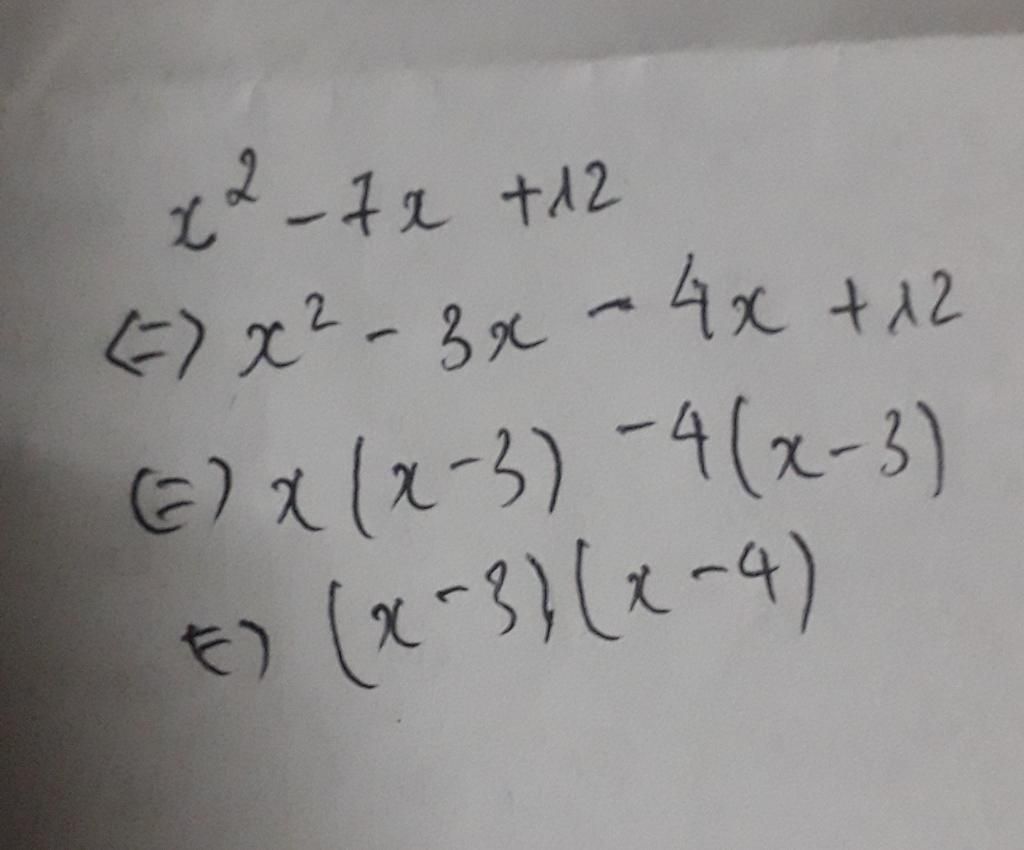 x² - 7x + 12
<=> x² - 3x - 4x + 12
<=> x(x-3) - 4(x-3)
<=> (x-3)(x-4)